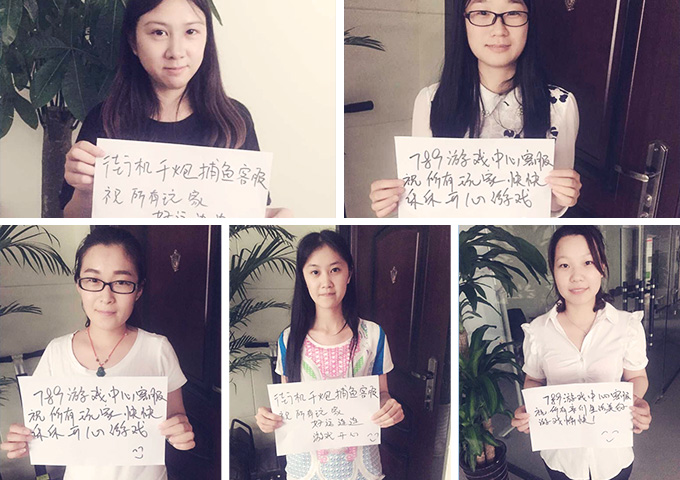 街机千炮捕鱼客服
祝所有玩家
好运连连
789游戏中心客服
祝所有玩家快快
乐乐开心游戏
789游戏中心客服
祝所有玩家快快
乐乐开心游戏
街机千炮捕鱼客服
祝所有玩家
好运连连
游戏开心
789游戏中心客服
祝所有
游戏愉快!